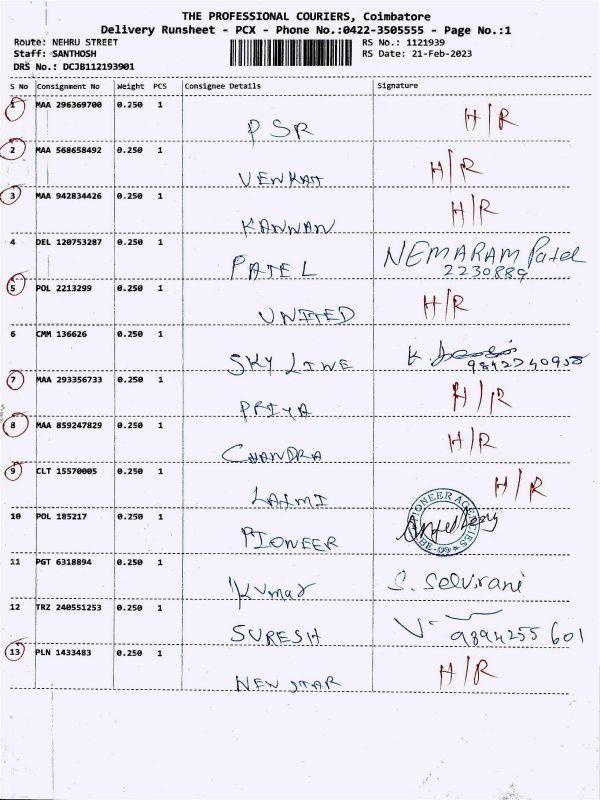 THE PROFESSIONAL COURIERS, Coimbatore
Delivery Runsheet - PCX - Phone No.:0422-3505555 - Page No.:1
Route: NEHRU STREET RS No.: 1121939
Staff: SANTHOSH RS Date: 21-Feb-2023
DRS No.: DCJB112193901
S No Consignment No Weight PCS Consignee Details Signature
1 MAA 296369700 0.250 1 PSR H/R
2 MAA 568658492 0.250 1 VENKAT H/R
3 MAA 942834426 0.250 1 KANNAN H/R
4 DEL 120753287 0.250 1 PATEL NEMARAM Patel
2230889
5 POL 2213299 0.250 1 UNITED H/R
6 CMM 136626 0.250 1 SKY LINE K.
7 MAA 293356733 0.250 1 PRIYA H/R
8 MAA 859247829 0.250 1 CHANDRA H/R
9 CLT 15570005 0.250 1 LAXMI H/R
10 POL 185217 0.250 1 PIONEER PIONEER AGENCIES
11 PGT 6318894 0.250 1 Kumar S. Selvirani
12 TRZ 240551253 0.250 1 SURESH V-
9894255 601
13 PLN 1433483 0.250 1 NEW STAR H/R